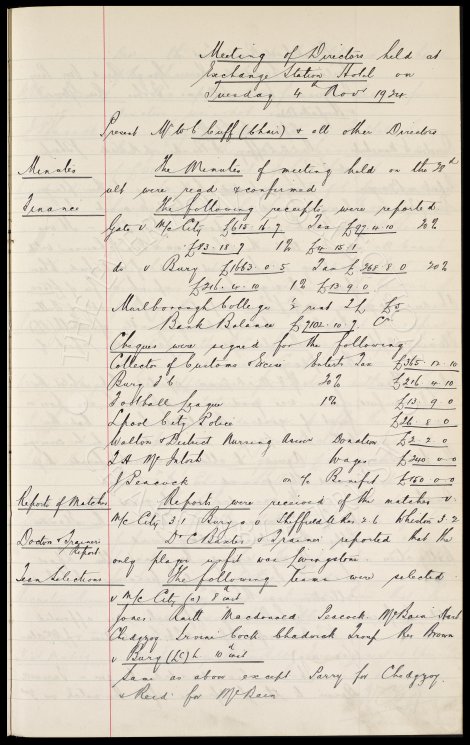 Meeting of Directors held at
Exchange Station Hotel on
Tuesday 4th Nov 1924
Present Mr W C Cuff (Chair) & all other Directors
Minutes The Minutes of meeting held on the 28th
ult were read & confirmed
Finance The following receipts were reported
Gate v M/c City £615. 16. 9 Tax £97. 4. 10 20%
£83. 18. 9 1% £4. 15. 1
do v Bury £1663. 0. 5 Tax £268. 8. 0 20%
£216. 4. 10 1% £13 9 0
Marlborough College ½ rent £5
Bank Balance £7102. 10. 7 Cr
Cheques were signed for the following
Collector of Customs & Excise Enterts Tax £365. 12. 10
Bury F C 20% £216 4. 10
Football League 1% £13. 9 0
Lpool City Police £26. 8 0
Walton & District Nursing Assocn Donation £2 2. 0
Mc Intosh Wages £240. 0. 0
J Peacock on a/c Benefit £150 0 0
Reports of Matches Reports were received of the matches v.
M/c City 3.1 Bury 0 0 Sheffield Res 2 6 3. 2
Doctor & Trainers Report Dr C Baxter & Trainer reported that the
only player unfit was Livingstone.
Team Selections The following teams were selected
v M/c City (a) 8th inst
Jones Raitt Macdonald Peacock McBain Hart
Chedgzoy Irvine Cock Chadwick Troup Res Brown
v Bury (LC) h 10th inst
Same as above except Parry for Chedgzoy.
& Reid for McBain